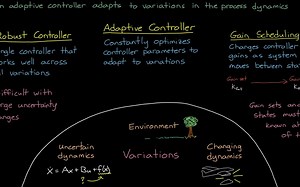 an adaptive controller adapts to variations in the process dynamics
Robust Controller
single controller that
works well across
all variations
difficult with
large uncertainty
changes
Adaptive Controller
Constantly optimizes
controller parameters to
adapt to variations
Gain Scheduling
Changes controller
gains as system
moves between states
Gain set
Gain sets and
states must
known
of t
Environment
Uncertain
dynamics
Variations
Changing
dynamics
ẋ = Ax + Bu + f(x)
?